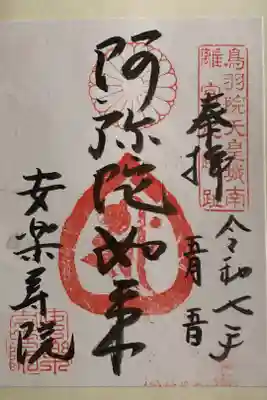 鳥羽院天皇城南
離宮
跡
奉拝
令和七年
五月 五日
阿弥陀如来
安楽寿院